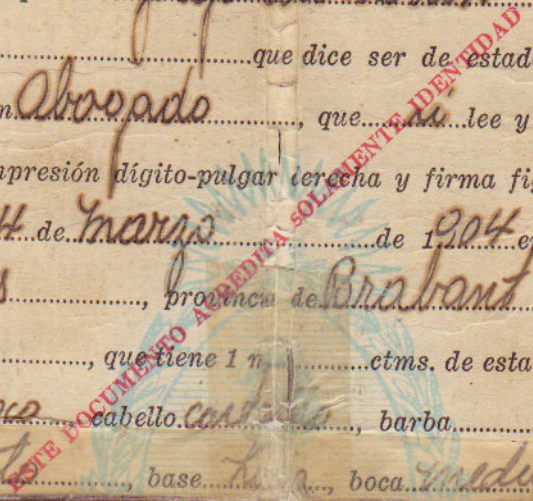 que dice ser de estad
n Abogado, que sí lee y
mpresión dígito-pulgar derecha y firma fi
4 de marzo de 1904 e
s, provincia de Brabant
, que tiene 1 m ctms. de esta
cabello castaño, barba
, base, boca medi
ESTE DOCUMENTO ACREDITA SOLAMENTE IDENTIDAD